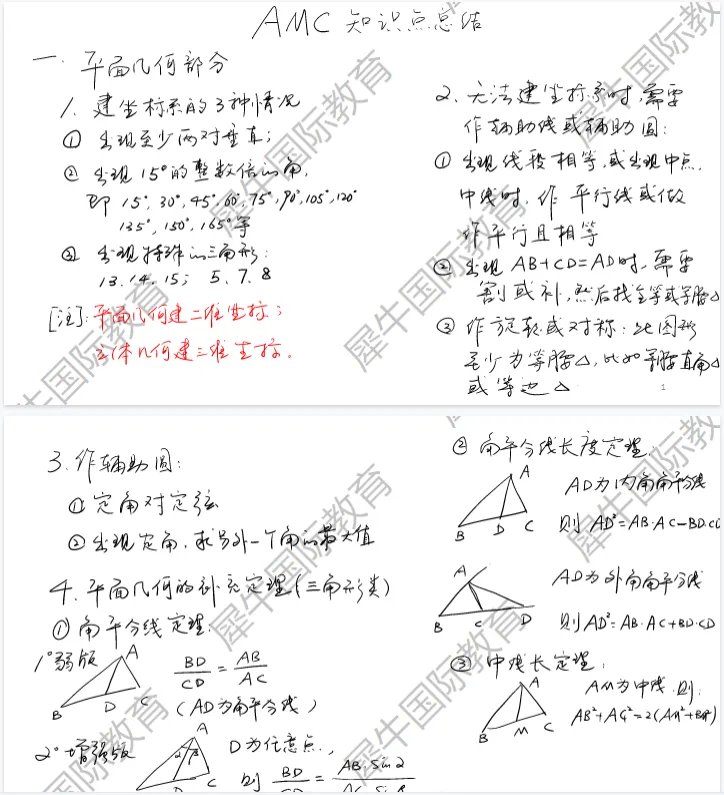 AMC 知识点总结
一. 平面几何部分
1. 建坐标系的3种情况
① 出现至少两对垂直;
② 出现15°的整数倍的角,
即 15°, 30°, 45°, 60°, 75°, 90°, 105°, 120°
135°, 150°, 165°等
③ 出现特殊的三角形:
13. 14. 15; 5. 7. 8
[注]: 平面几何建二维坐标;
立体几何建三维坐标.
2. 无法建坐标系时,需要
作辅助线或辅助圆:
① 出现线段相等,或出现中点,
中线时,作平行线或做
作平行且相等
② 出现 AB+CD=AD时,需要
割或补,然后找全等或等腰△
③ 作旋转或对称:此图形
至少为等腰△,比如等腰直角△
或等边△
1
3. 作辅助圆:
① 定角对定弦
② 出现定角,求另外一个角的最大值
4. 平面几何的补充定理(三角形类)
① 角平分线定理:
1° 弱版
A
B D C
BD/CD = AB/AC
(AD为角平分线)
2° 增强版
A
2 β
D C
D为任意点,
则 BD/CD = AB·Sin2
② 角平分线长度定理:
A
B D C
AD为内角角平分线
则 AD²=AB·AC-BD·CD
A
B C D
AD为外角角平分线
则AD²=AB·AC+BD·CD
③ 中线长定理:
A
B M C
AM为中线,则:
AB²+AC²=2(AM²+BM²)
犀牛国际教育
犀牛国际教育
犀牛国际教育
犀牛国际教育
犀牛国际教育
犀牛国际教育